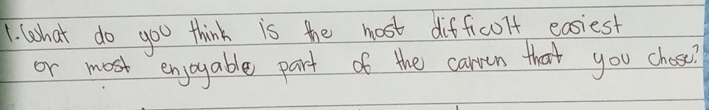 1. What do you think is the most difficolt easiest
or most enjoyable part of the carren that you chose?